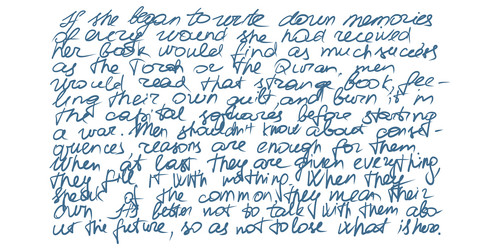 If she began to write down memories
of every wound she had received
her book would find as much success
as the Torah or the Quran, men
would read that strange book, fee-
ling their own guilt, and burn it in
the capital squares before starting
a war. Men shouldn't know about conse-
quences, reasons are enough for them.
When at last they are given everything,
they fill it with nothing. When they
speak of the common, they mean their
own. It's better not to talk with them abo-
ut the future, so as not to lose what is hers.